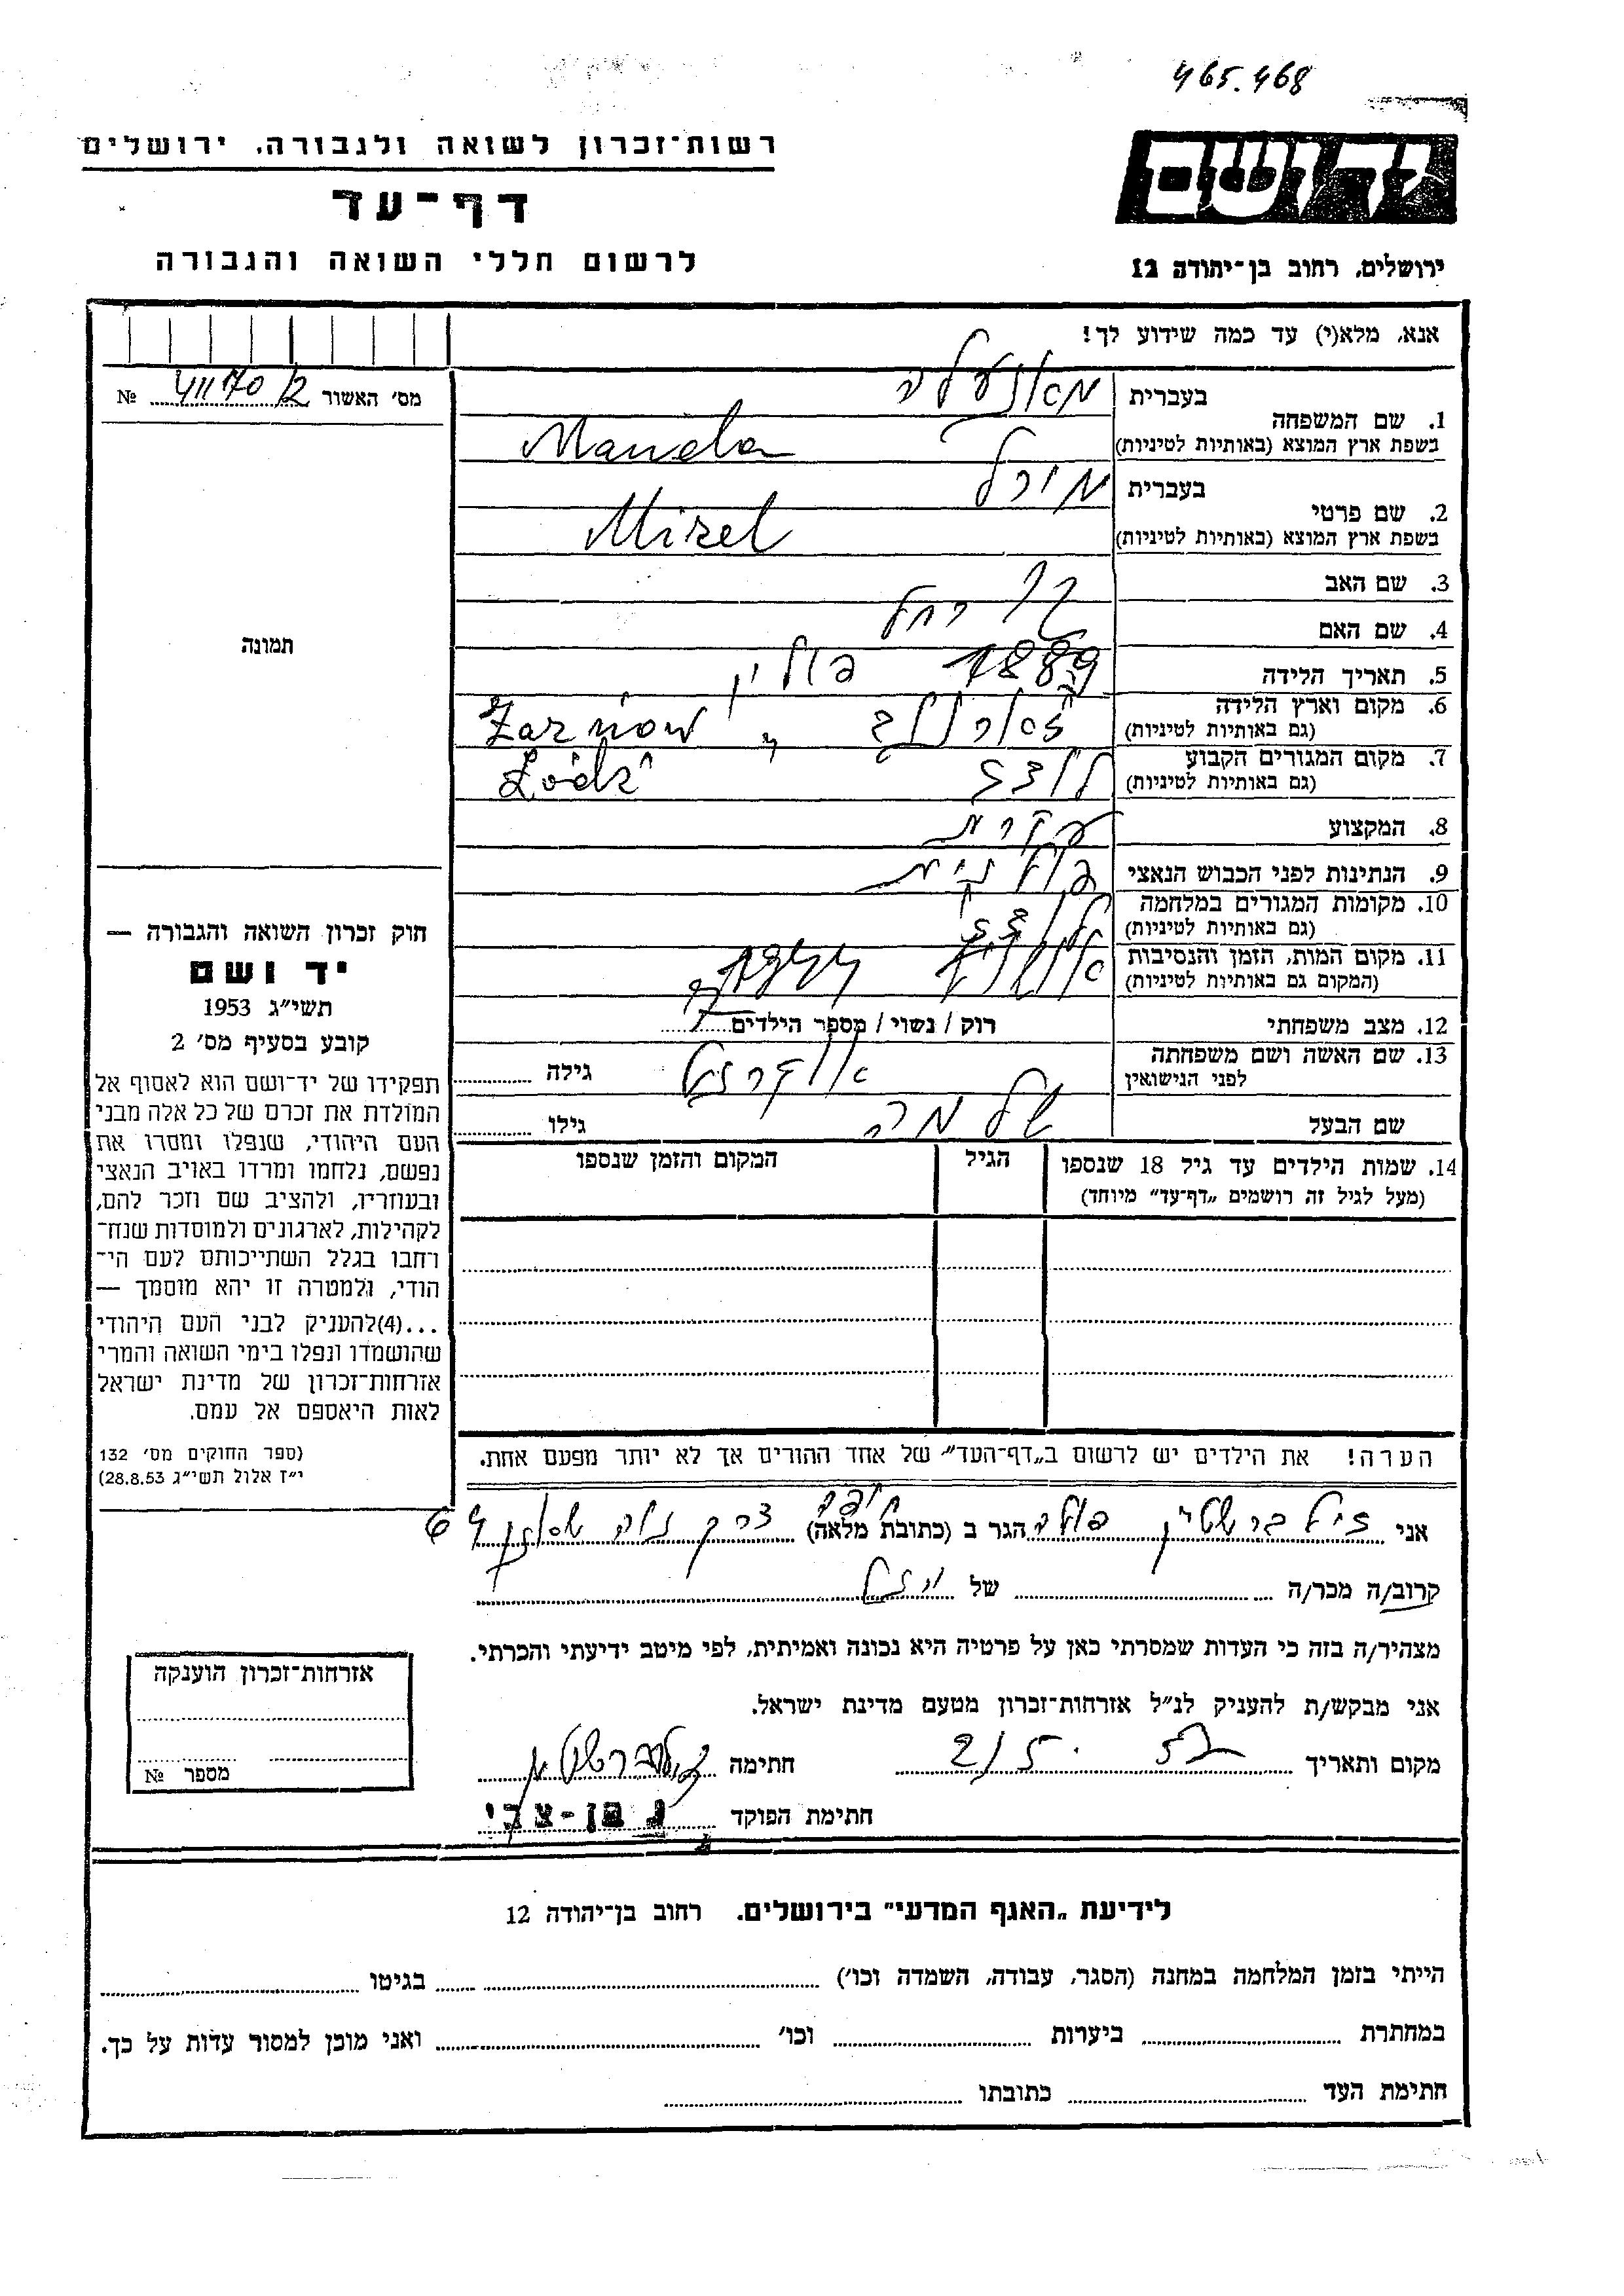 465.468
רשות־זכרון לשואה ולגבורה, ירושלים
יד ושם
דף־עד
לרשום חללי השואה והגבורה
ירושלים, רחוב בן־יהודה 12
אנא, מלא(י) עד כמה שידוע לך!
מס׳ האשור № 411170/2
1. שם המשפחה
בעברית
בשפת ארץ המוצא (באותיות לטיניות) Manela
2. שם פרטי
בעברית
בשפת ארץ המוצא (באותיות לטיניות) Mirel
3. שם האב
4. שם האם רחל
5. תאריך הלידה 1889
6. מקום וארץ הלידה
(גם באותיות לטיניות) פולין Żarnow
7. מקום המגורים הקבוע
(גם באותיות לטיניות) לודז Łódź
8. המקצוע עקרת
9. הנתינות לפני הכבוש הנאצי פולנית
10. מקומות המגורים במלחמה
(גם באותיות לטיניות) לודז
11. מקום המות, הזמן והנסיבות
(המקום גם באותיות לטיניות)
12. מצב משפחתי רוק / נשוי / מספר הילדים
13. שם האשה ושם משפחתה
לפני הנישואין גילה
שם הבעל שלמה גילו
14. שמות הילדים עד גיל 18 שנספו
(מעל לגיל זה רושמים „דף־עד״ מיוחד)
הגיל
המקום והזמן שנספו
תמונה
חוק זכרון השואה והגבורה —
יד ושם
תשי״ג 1953
קובע בסעיף מס׳ 2
תפקידו של יד־ושם הוא לאסוף אל
המולדת את זכרם של כל אלה מבני
העם היהודי, שנפלו ומסרו את
נפשם, נלחמו ומרדו באויב הנאצי
ובעוזריו, ולהציב שם וזכר להם,
לקהילות, לארגונים ולמוסדות שנח־
רחבו בגלל השתייכותם לעם הי־
הודי, ולמטרה זו יהא מוסמך —
...(4)להעניק לבני העם היהודי
שהושמדו ונפלו בימי השואה והמרי
אזרחות־זכרון של מדינת ישראל
לאות היאספם אל עמם.
(ספר החוקים מס׳ 132
י״ז אלול תשי״ג 28.8.53)
הערה! את הילדים יש לרשום ב„דף־העד״ של אחד ההורים אך לא יותר מפעם אחת.
אני זילברשטיין פולה הגר ב (כתובת מלאה) חיפה 64
קרוב/ה מכר/ה של
מצהיר/ה בזה כי העדות שמסרתי כאן על פרטיה היא נכונה ואמיתית, לפי מיטב ידיעתי והכרתי.
אני מבקש/ת להעניק לנ״ל אזרחות־זכרון מטעם מדינת ישראל.
מקום ותאריך חתימה זילברשטיין
חתימת הפוקד נ בן-צבי
אזרחות־זכרון הוענקה
מספר №
לידיעת „האגף המדעי״ בירושלים. רחוב בן־יהודה 12
הייתי בזמן המלחמה במחנה (הסגר, עבודה, השמדה וכו׳) בגיטו
במחתרת ביערות וכו׳ ואני מוכן למסור עדות על כך.
חתימת העד כתובתו